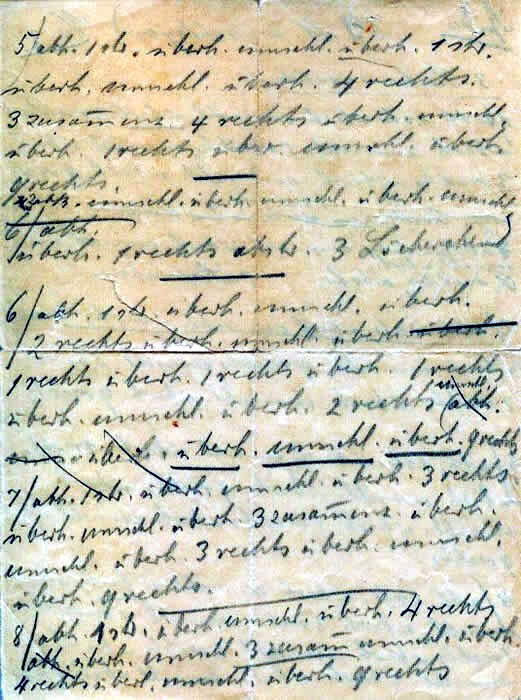 5/ abh. 1 str. überh. umschl. überh. 1 str.
überh. umschl. überh. 4 rechts.
3 zusam̄en 4 rechts überh. umschl.
überh. 1 rechts über. umschl. überh.
9 rechts.
umschl. überh. umschl. überh. umschl.
6/ abh.
überh. 1 rechts abstr. 3 Löcherchen
6/ abh. 1 str. überh. umschl. überh.
2 rechts überh. umschl. überh. überh.
1 rechts überh. 1 rechts überh. 1 rechts
umschl.
überh. umschl. überh. 2 rechts abh.
überh. überh. umschl. überh. 9 rechts
7/ abh. 1 str. überh. umschl. überh. 3 rechts
überh. umschl. überh. 3 zusam̄en überh.
umschl. überh. 3 rechts überh. umschl.
überh. 9 rechts.
8/ abh. 1 str. überh. umschl. überh. 4 rechts
abh. überh. umschl. 3 zusam̄ umschl. überh.
4 rechts überh. umschl. überh. 9 rechts